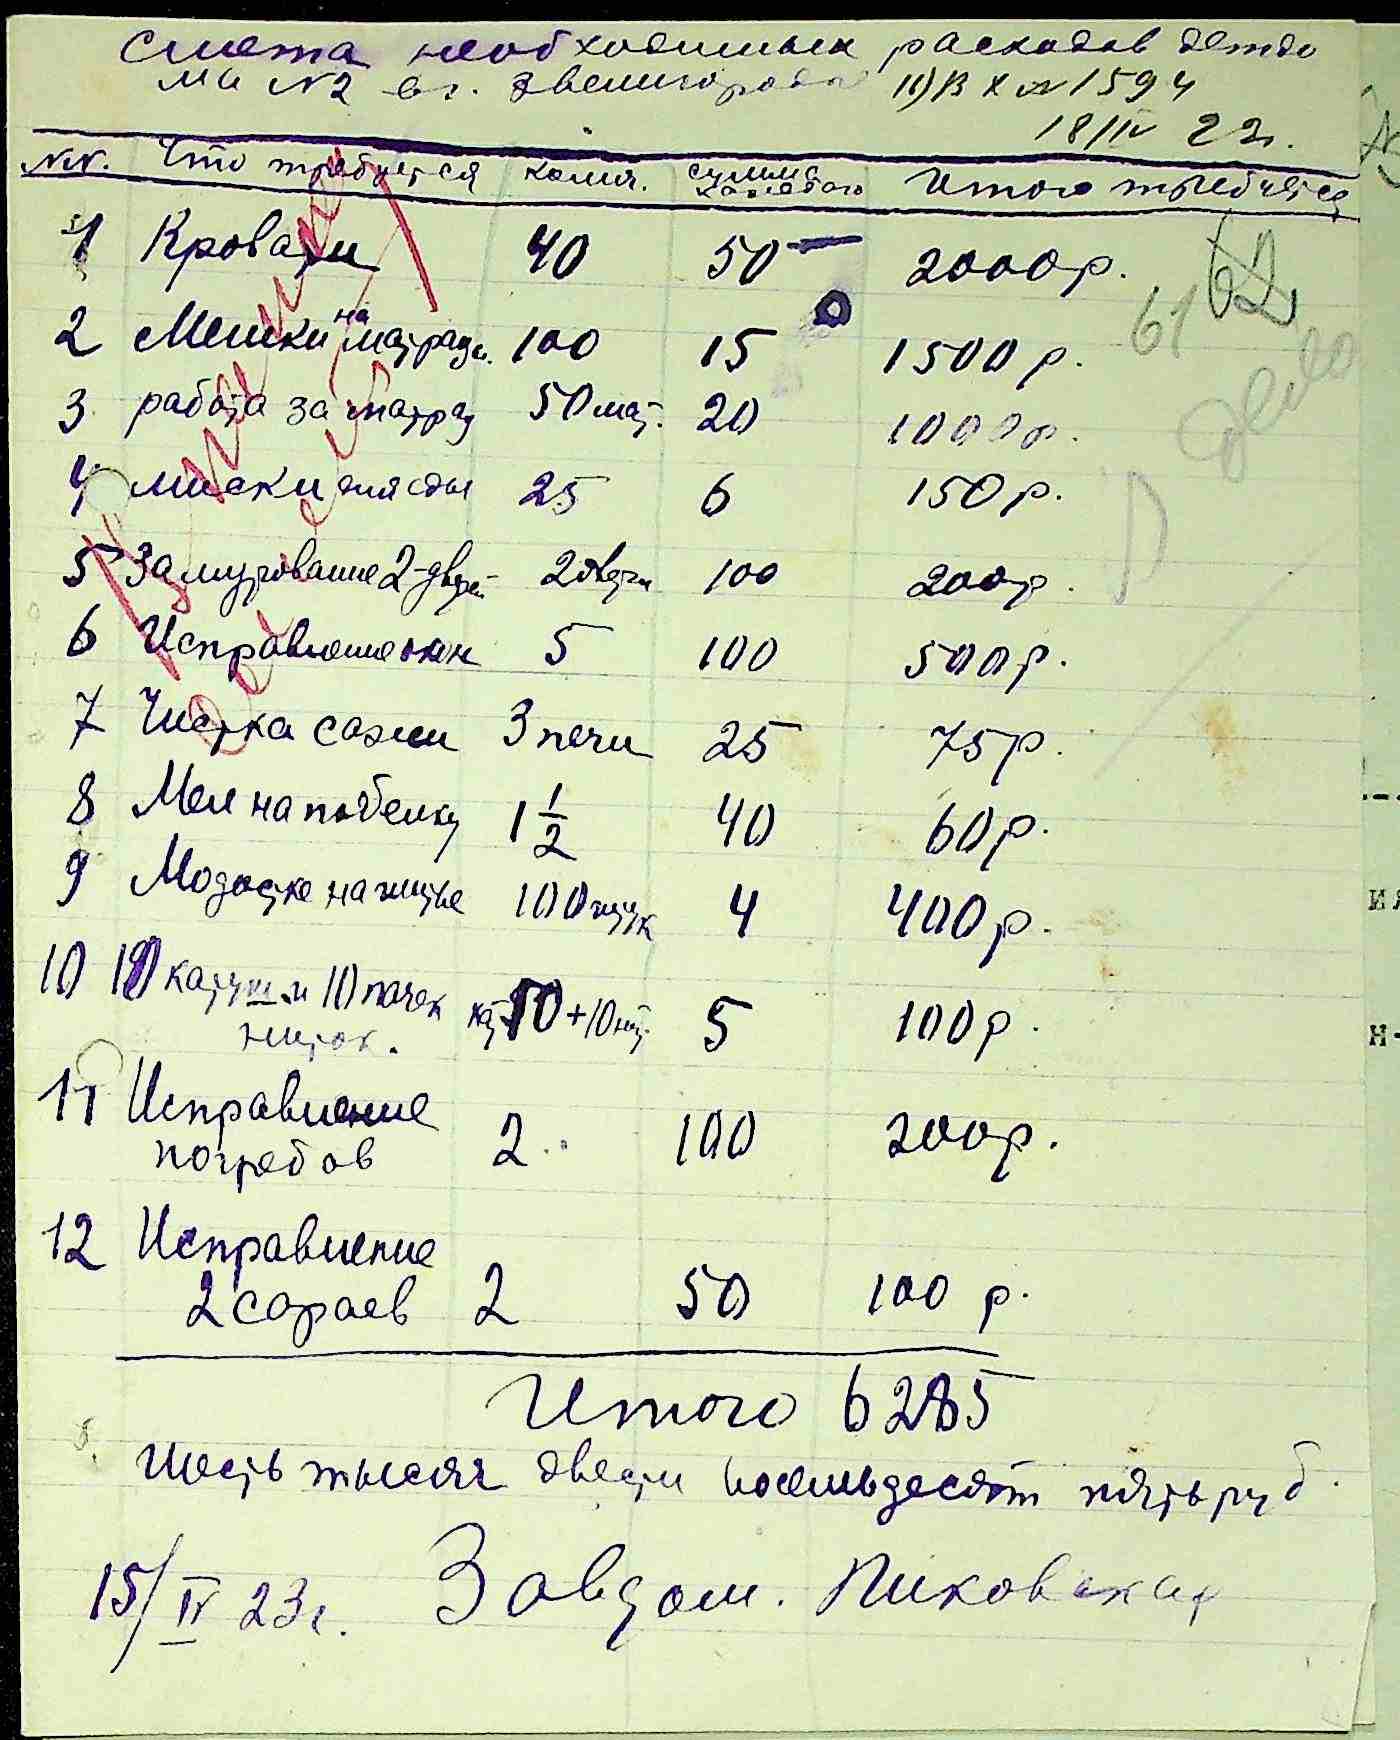 Смета необходимых расходов детдо
ма N2 в г. Звенигорода Вх N 1594
18/IV 23г.
NN. Что требуется колич. сумма каждого Итого требуется
1 Кровати 40 50 2000р.
2 Мешки на матрацы 100 15 1500р.
3 работа за матрац 50 мат. 20 1000р.
4 миски для еды 25 6 150р.
5 Замурование 2-дверей 2 двери 100 200р.
6 Исправление окон 5 100 500р.
7 Чистка сажи 3 печи 25 75р.
8 Мел на побелку 1 1/2 40 60р.
9 на шитье 100 штук 4 400р.
10 10 катуш. и 10 пачек кат 10+10 5 100р.
ниток.
11 Исправление
погребов 2 100 200р.
12 Исправление
2 сараев 2 50 100 р.
Итого 6285
Шесть тысяч двести восемьдесят пять руб.
15/IV 23г. Завдом. Пиковская
61 62